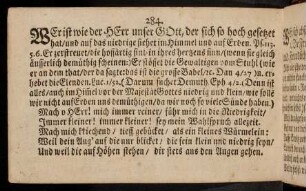 284.
WEr ist wie der HErr unser GOtt, der sich so hoch gesetzet
hat/und auf das niedrige siehet im Himmel und auf Erden. Ps. 113.
5. 6. Er zerstreuet/die hoffärtig sind in ihres hertzens sinn/(wenn sie gleich
äusserlich demüthig scheinen:) Er stösset die Gewaltigen vom Stuhl (wie
er an dem that/der da sagte: das ist die grosse Babel/2c. Dan. 4/27 2c. er-
hebet die Elenden. Luc. 1/52. Darum suchet Demuth Eph. 4/2. Denn ist
alles/auch im Himel vor der Majestät Gottes niedrig und klein/wie solte
wir nicht auf Erden uns demüthigen/da wir noch so viele Sünde haben.)
Mach o HErr! mich immer reiner/ führ mich in die Niedrigkeit/
Immer kleiner! immer kleiner! sey mein Wahlspruch allezeit.
Mach mich kriechend/ tieff gebücket/ als ein kleines Würmelein:
Weil dein Aug' auf die nur blicket/ die sein klein und niedrig seyn/
Und weil die auf Höhen stehen/ dir stets aus den Augen gehen.